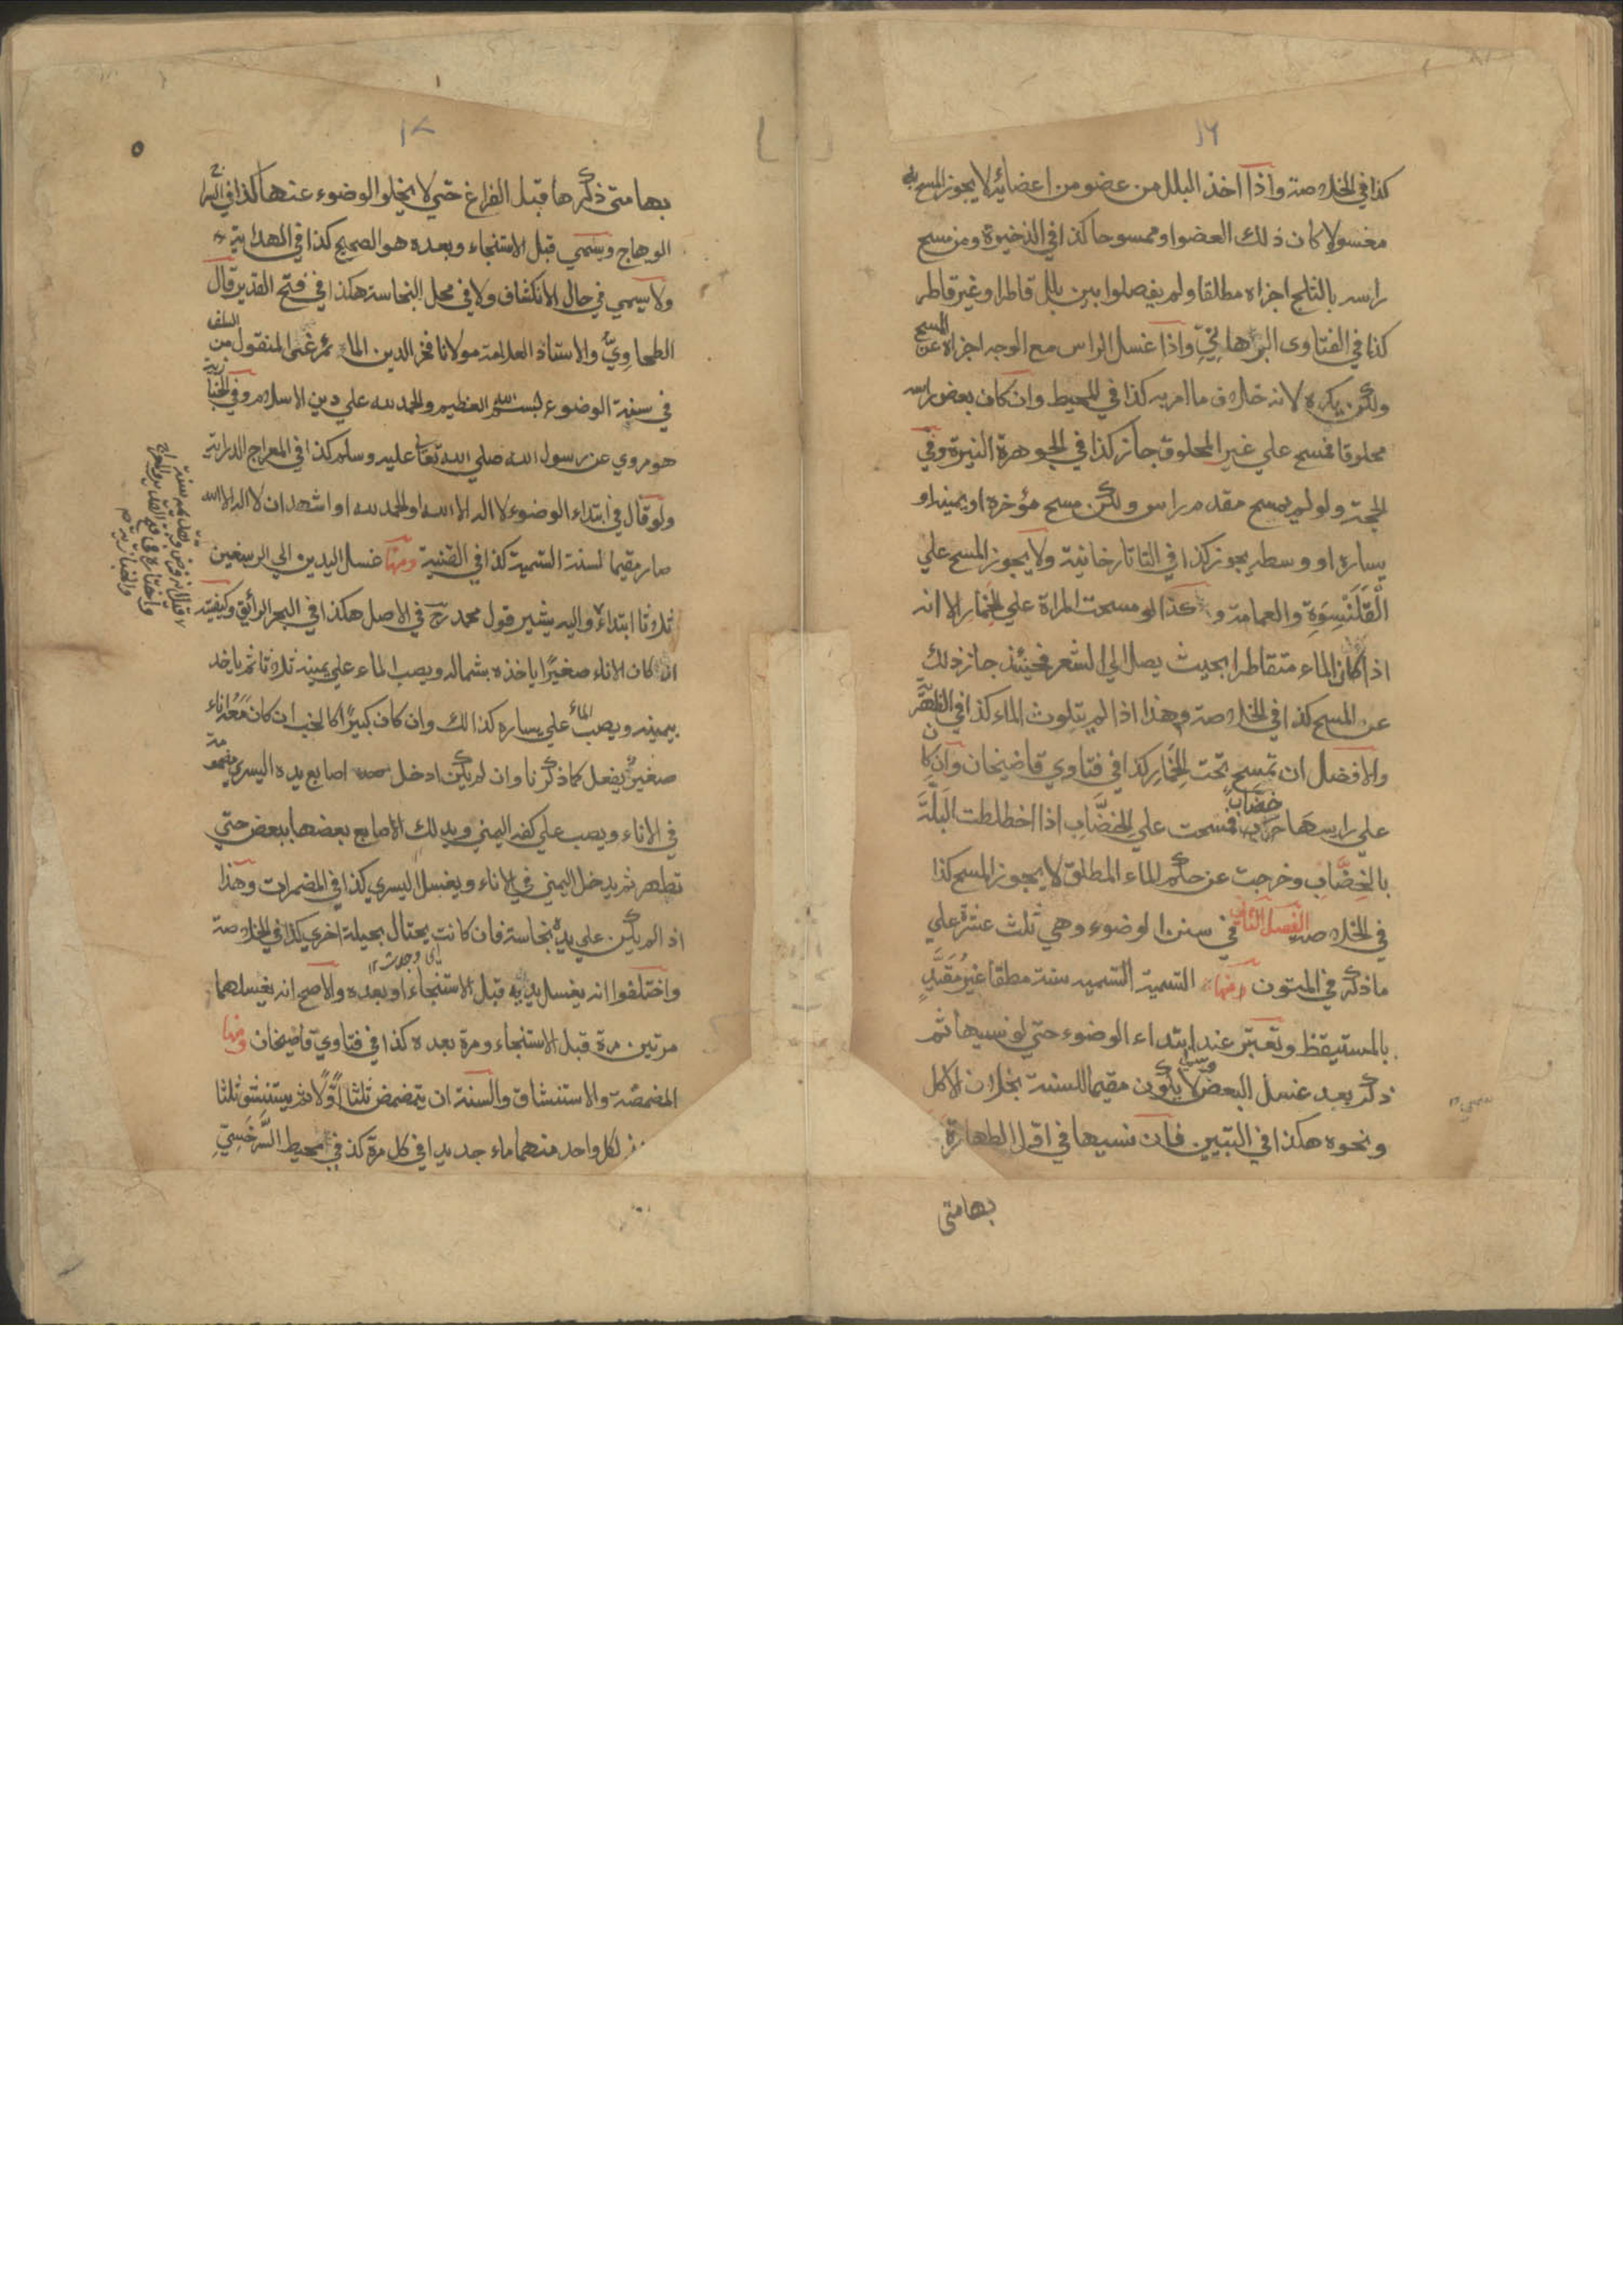 ١٦
كذا في الخلاصة واذا اخذ البلل من عضو من اعضائه لا يجوز المسح به
مغسولا كان ذلك العضو او ممسوحا كذا في الذخيرة ومن مسح
راسه بالثلج اجزاه مطلقا ولم يفصلوا بين بلل قاطر او غير قاطر
كذا في الفتاوى البرهاني واذا غسل الراس مع الوجه اجزاه عن المسح
ولكن يكره لانه خلاف ما امر به كذا في المحيط وان كان بعض راسه
محلوقا فمسح علي غير المحلوق جاز كذا في الجوهرة النيرة وفي
الحجة ولو لم يمسح مقدم راس ولكن مسح مؤخره او يمينه او
يساره او وسطه يجوز كذا في التاتارخانية ولا يجوز المسح علي
الْقَلَنْسِوَةِ والعمامة و كذا لو مسحت المراة علي الخمار الا انه
اذا كان الماء متقاطرا بحيث يصل الي الشعر فحينئذ جاز ذلك
عن المسح كذا في الخلاصة وهذا اذا لم يتلوث الماء كذا في الظهيرية
والافضل ان تمسح تحت الخمار كذا في فتاوي قاضيخان وان كان
علي راسها خضاب فمسحت علي الخضّاب اذا اختلطت البلّة
بالخِضّابِ وخرجت عن حكم الماء المطلق لا يجوز المسح كذا
في الخلاصة الفصل الثاني في سنن الوضوء وهي ثلث عشرة علي
ما ذكر في المتون ومنها التسمية التسميه سنة مطقا غيرُ مُقَيَّدٍ
بالمستيقظ وتعتبر عند ابتداء الوضوء حتي لو نسيها ثم
ذكر بعد غسل البعض وسمي لا يكون مقيما للسنة بخلاف الاكل
ونحوه هكذا في التبيين فان نسيها في اول الطهارة
بها متى
١٧
٥
بها متى ذكرها قبل الفراغ حتي لا يخلو الوضوء عنها كذا في السراج
الوهاج ويسمي قبل الاستنجاء وبعده هو الصحيح كذا في الهداية
ولا يسمي في حال الانكشاف ولا في محل النجاسة هكذا في فتح القدير قال
الطحاوِيّ والاستاذ العلامة مولانا فخر الدين الما يمرغى المنقول من السلف
في سنة الوضوء بسم الله العظيم والحمد لله علي دين الاسلام وفي الخبازية
هو مروي عن رسول الله صلي الله تعالى عليه وسلم كذا في المعراج الدراية
ولو قال في ابتداء الوضوء لا اله الا الله او الحمد لله او اشهد ان لا اله الا الله
صار مقيما لسنة التسمية كذا في القنية ومنها غسل اليدين الي الرسغين
ثلاثا ابتداءً واليه يشير قول محمد رح في الاصل هكذا في البحر الرائق وكيفيته
انه كان الاناء صغيرًا ياخذه بشماله ويصب الماء علي يمينه ثلاثا ثم ياخذ
بيمينه ويصب الماء علي يساره كذالك وان كان كبيرًا كالحب ان كان معه اناء
صغير يفعل كما ذكرنا وان لم يكن ادخل اصابع يده اليسري مضمومة
في الاناء ويصب علي كفه اليمني ويدلك الاصابع بعضها ببعض حتي
تطهر ثم يدخل اليمني في الاناء ويغسل اليسري كذا في المضمرات وهذا
اذا لم يكن علي يده نجاسة فان كانت يحتال بحيلة اخري كذا في الخلاصة
واختلفوا انه يغسل يديه قبل الاستنجاء او بعده والاصح انه يغسلهما
مرتين مرة قبل الاستنجاء ومرة بعده كذا في فتاوي قاضيخان ومنها
المضمضة والاستنشاق والسنة ان يتمضمض ثلثا اوّلًا ثم يستنشق ثلثا
لكل واحد منهما ماء جديدا في كل مرة كذ في محيط السَّرَخَسِيِّ